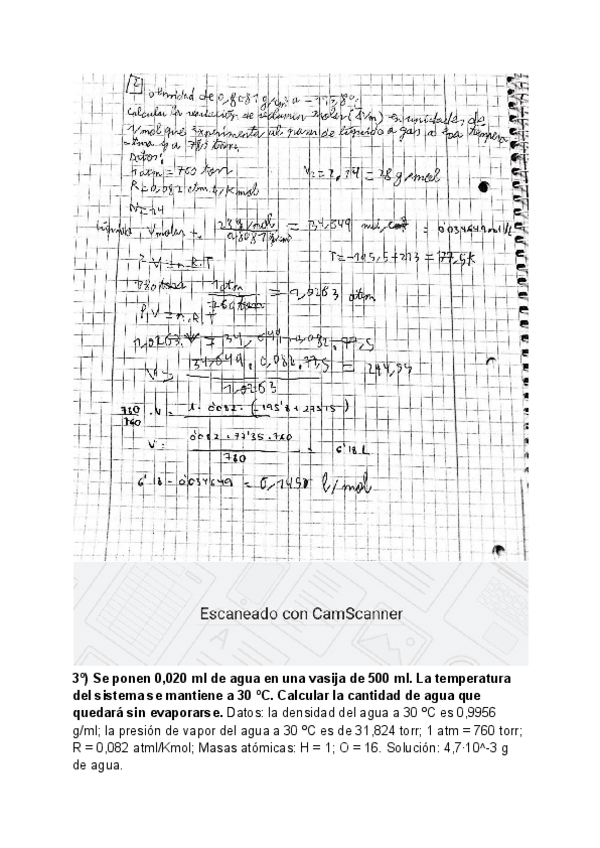 2
densidad de 0,8081 g/cm³ a -195,8º.
Calcular la variación de volumen molar (l/m) en unidades de
l/mol que experimenta al pasar de líquido a gas a esa tempera
-tura y a 780 torr.
Datos:
1 atm = 760 torr
R = 0,082 atm.l/Kmol
N = 14
N₂ = 2.14 = 28 g/mol
Líquido V molar
28 g/mol
0,8081 g/cm³
= 34,649
= 0'034649
T = -195,5+273 = 77,5K
P.V = n.R.T
780 torr 1 atm
760 torr
= 1,0263 atm
P.V = n.R.T
1,0263.V = 34,649.0,082.77,5
34,649.0,082.77,5
1,0263
= 214,55
780
760
.V = 1.0'082.(-195'8+273'15)
V =
0'082.77'35.760
780
= 6'18 L
6'18 - 0'034649 = 6,1450 l/mol
Escaneado con CamScanner
3º) Se ponen 0,020 ml de agua en una vasija de 500 ml. La temperatura
del sistema se mantiene a 30 ºC. Calcular la cantidad de agua que
quedará sin evaporarse. Datos: la densidad del agua a 30 ºC es 0,9956
g/ml; la presión de vapor del agua a 30 ºC es de 31,824 torr; 1 atm = 760 torr;
R = 0,082 atml/Kmol; Masas atómicas: H = 1; O = 16. Solución: 4,7·10^-3 g
de agua.